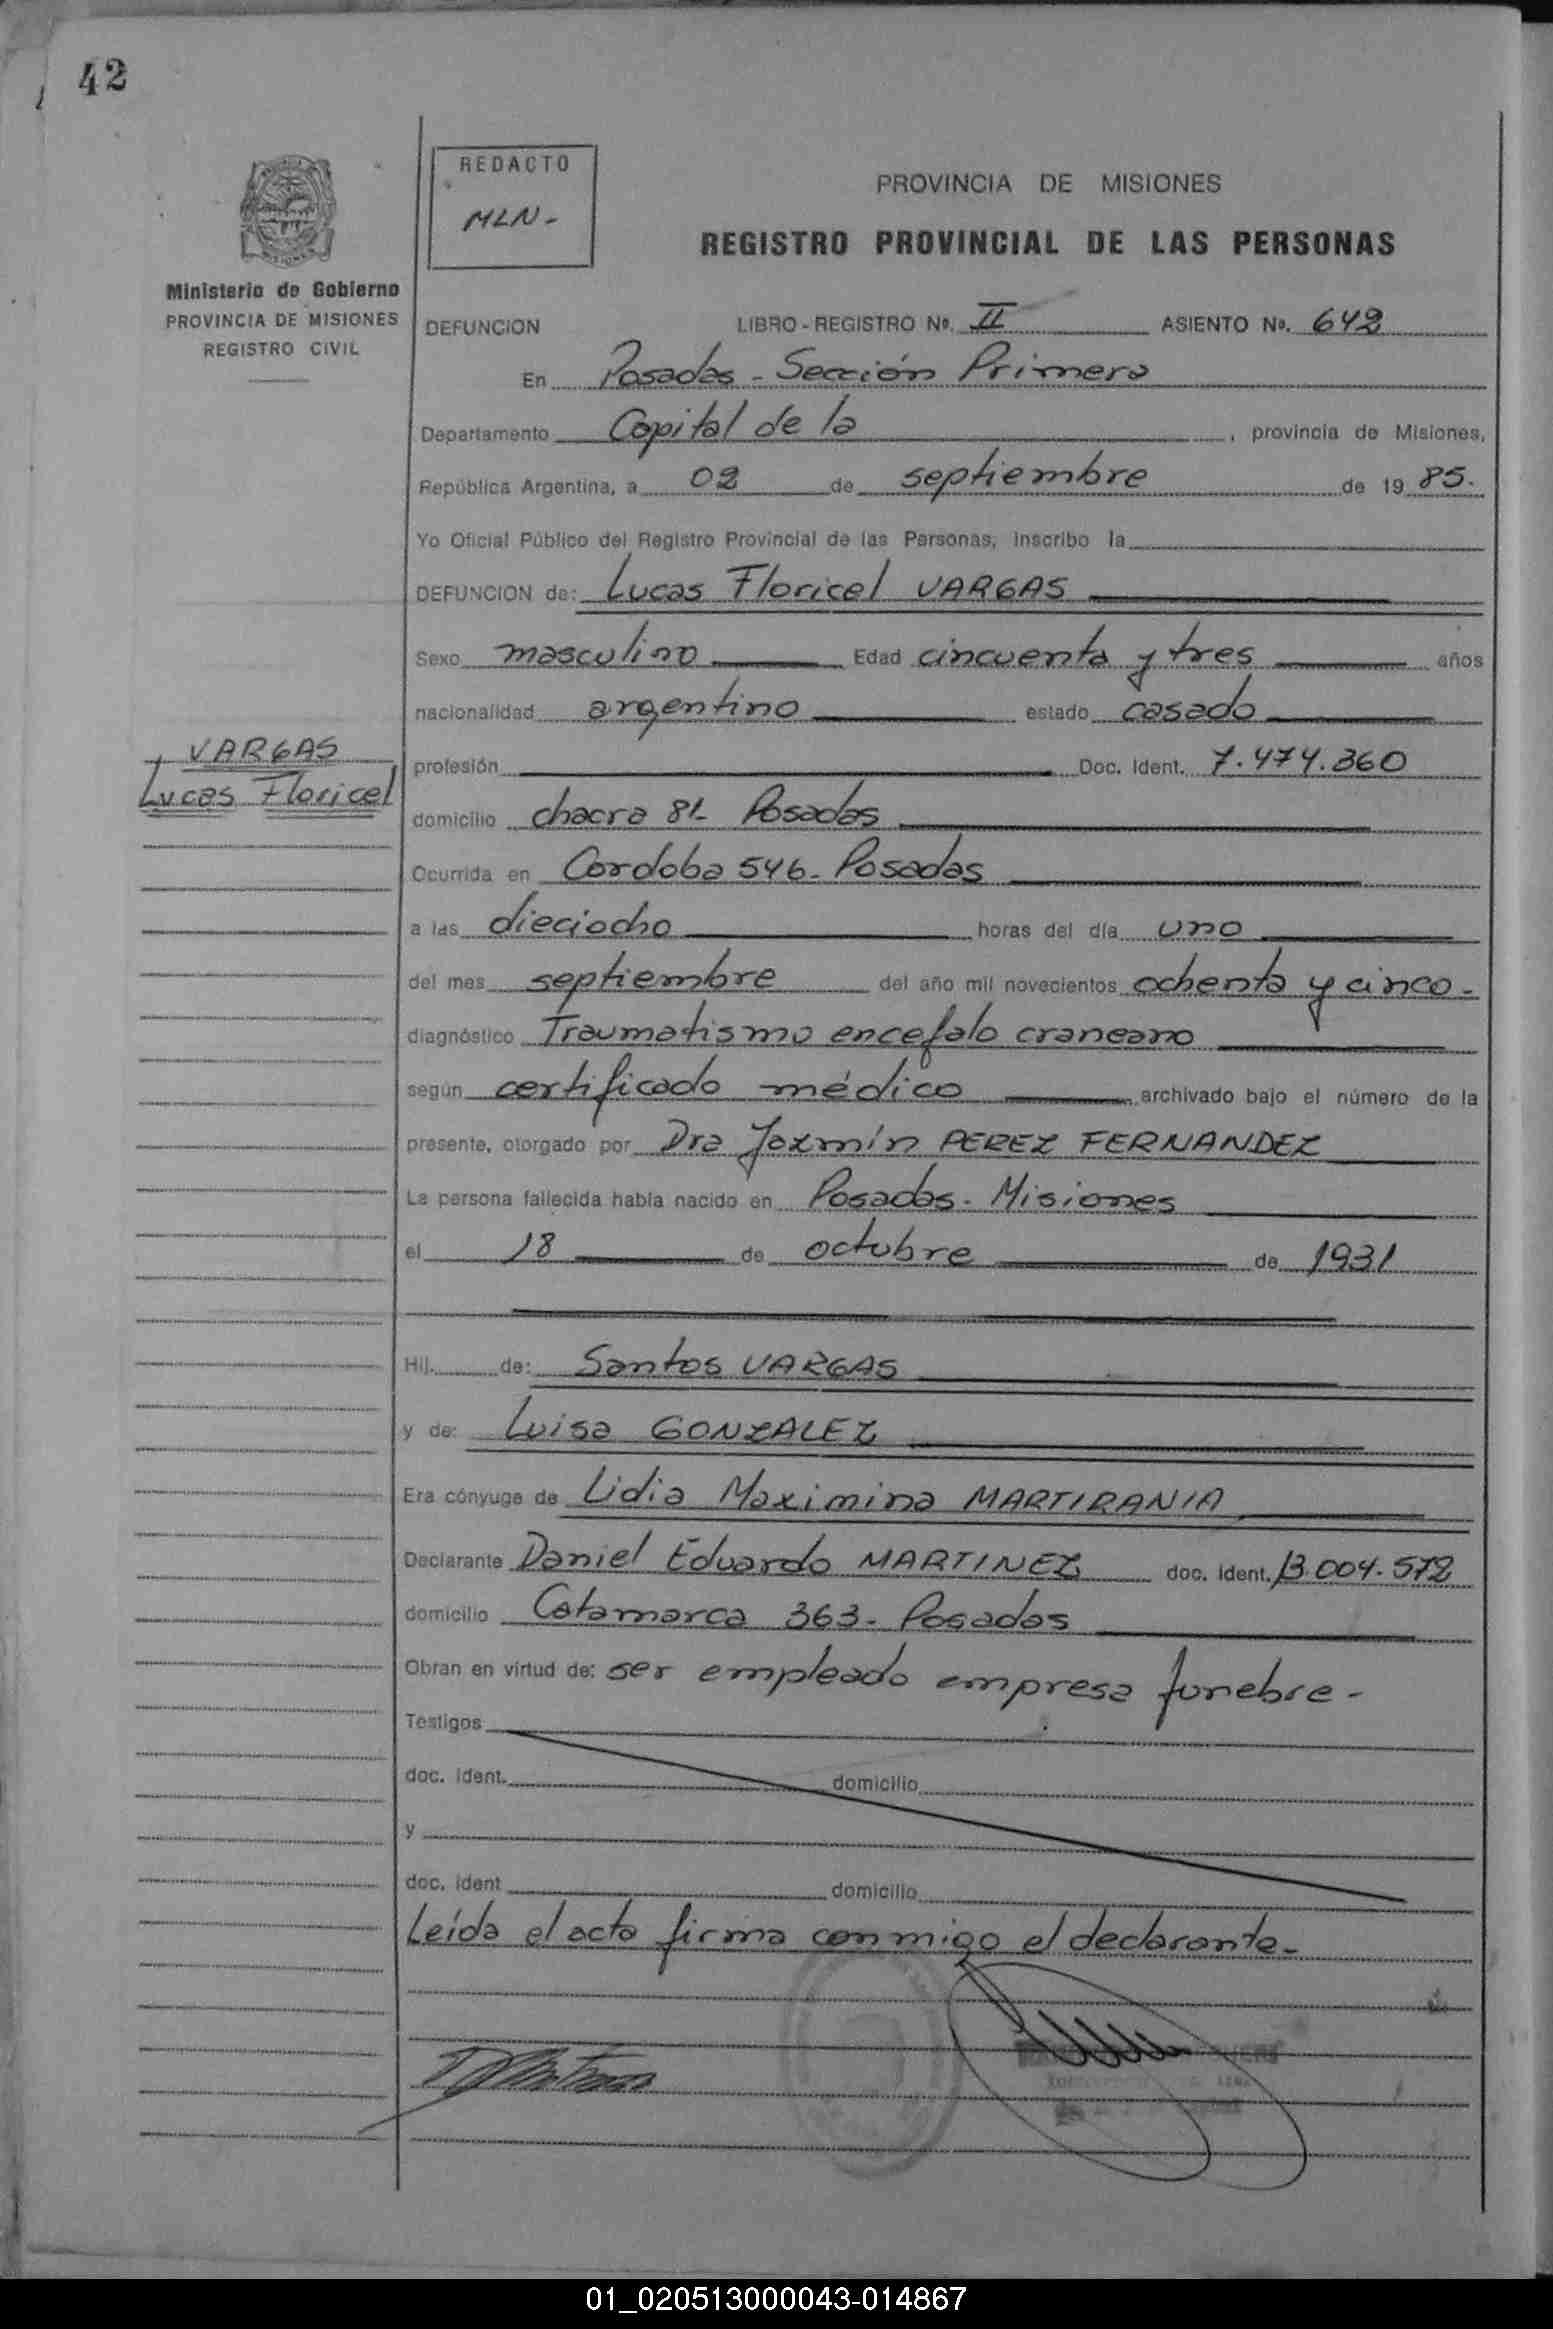 42
REDACTO
MLN-
MISIONES
Ministerio de Gobierno
PROVINCIA DE MISIONES
REGISTRO CIVIL
PROVINCIA DE MISIONES
REGISTRO PROVINCIAL DE LAS PERSONAS
DEFUNCION LIBRO-REGISTRO Nº. II ASIENTO Nº. 642
En Posadas - Sección Primera
Departamento Capital de la , provincia de Misiones,
República Argentina, a 02 de septiembre de 19 85.
Yo Oficial Público del Registro Provincial de las Personas, inscribo la
DEFUNCION de: Lucas Floricel VARGAS
Sexo masculino Edad cincuenta y tres años
nacionalidad argentino estado casado
VARGAS
Lucas Floricel
profesión Doc. Ident. 7.474.360
domicilio chacra 81- Posadas
Ocurrida en Cordoba 546- Posadas
a las dieciocho horas del día uno
del mes septiembre del año mil novecientos ochenta y cinco-
diagnóstico Traumatismo encefalo craneano
según certificado médico archivado bajo el número de la
presente, otorgado por Dra Jazmín PEREZ FERNANDEZ
La persona fallecida había nacido en Posadas- Misiones
el 18 de octubre de 1931
Hij de: Santos VARGAS
y de: Luisa GONZALEZ
Era cónyuge de Lidia Maximina MARTIRANIA
Declarante Daniel Eduardo MARTINEZ doc. ident. 13.004.572
domicilio Catamarca 363- Posadas
Obran en virtud de: ser empleado empresa funebre-
Testigos
doc. ident. domicilio
y
doc. ident domicilio
Leída el acta firma conmigo el declarante-
01_020513000043-014867